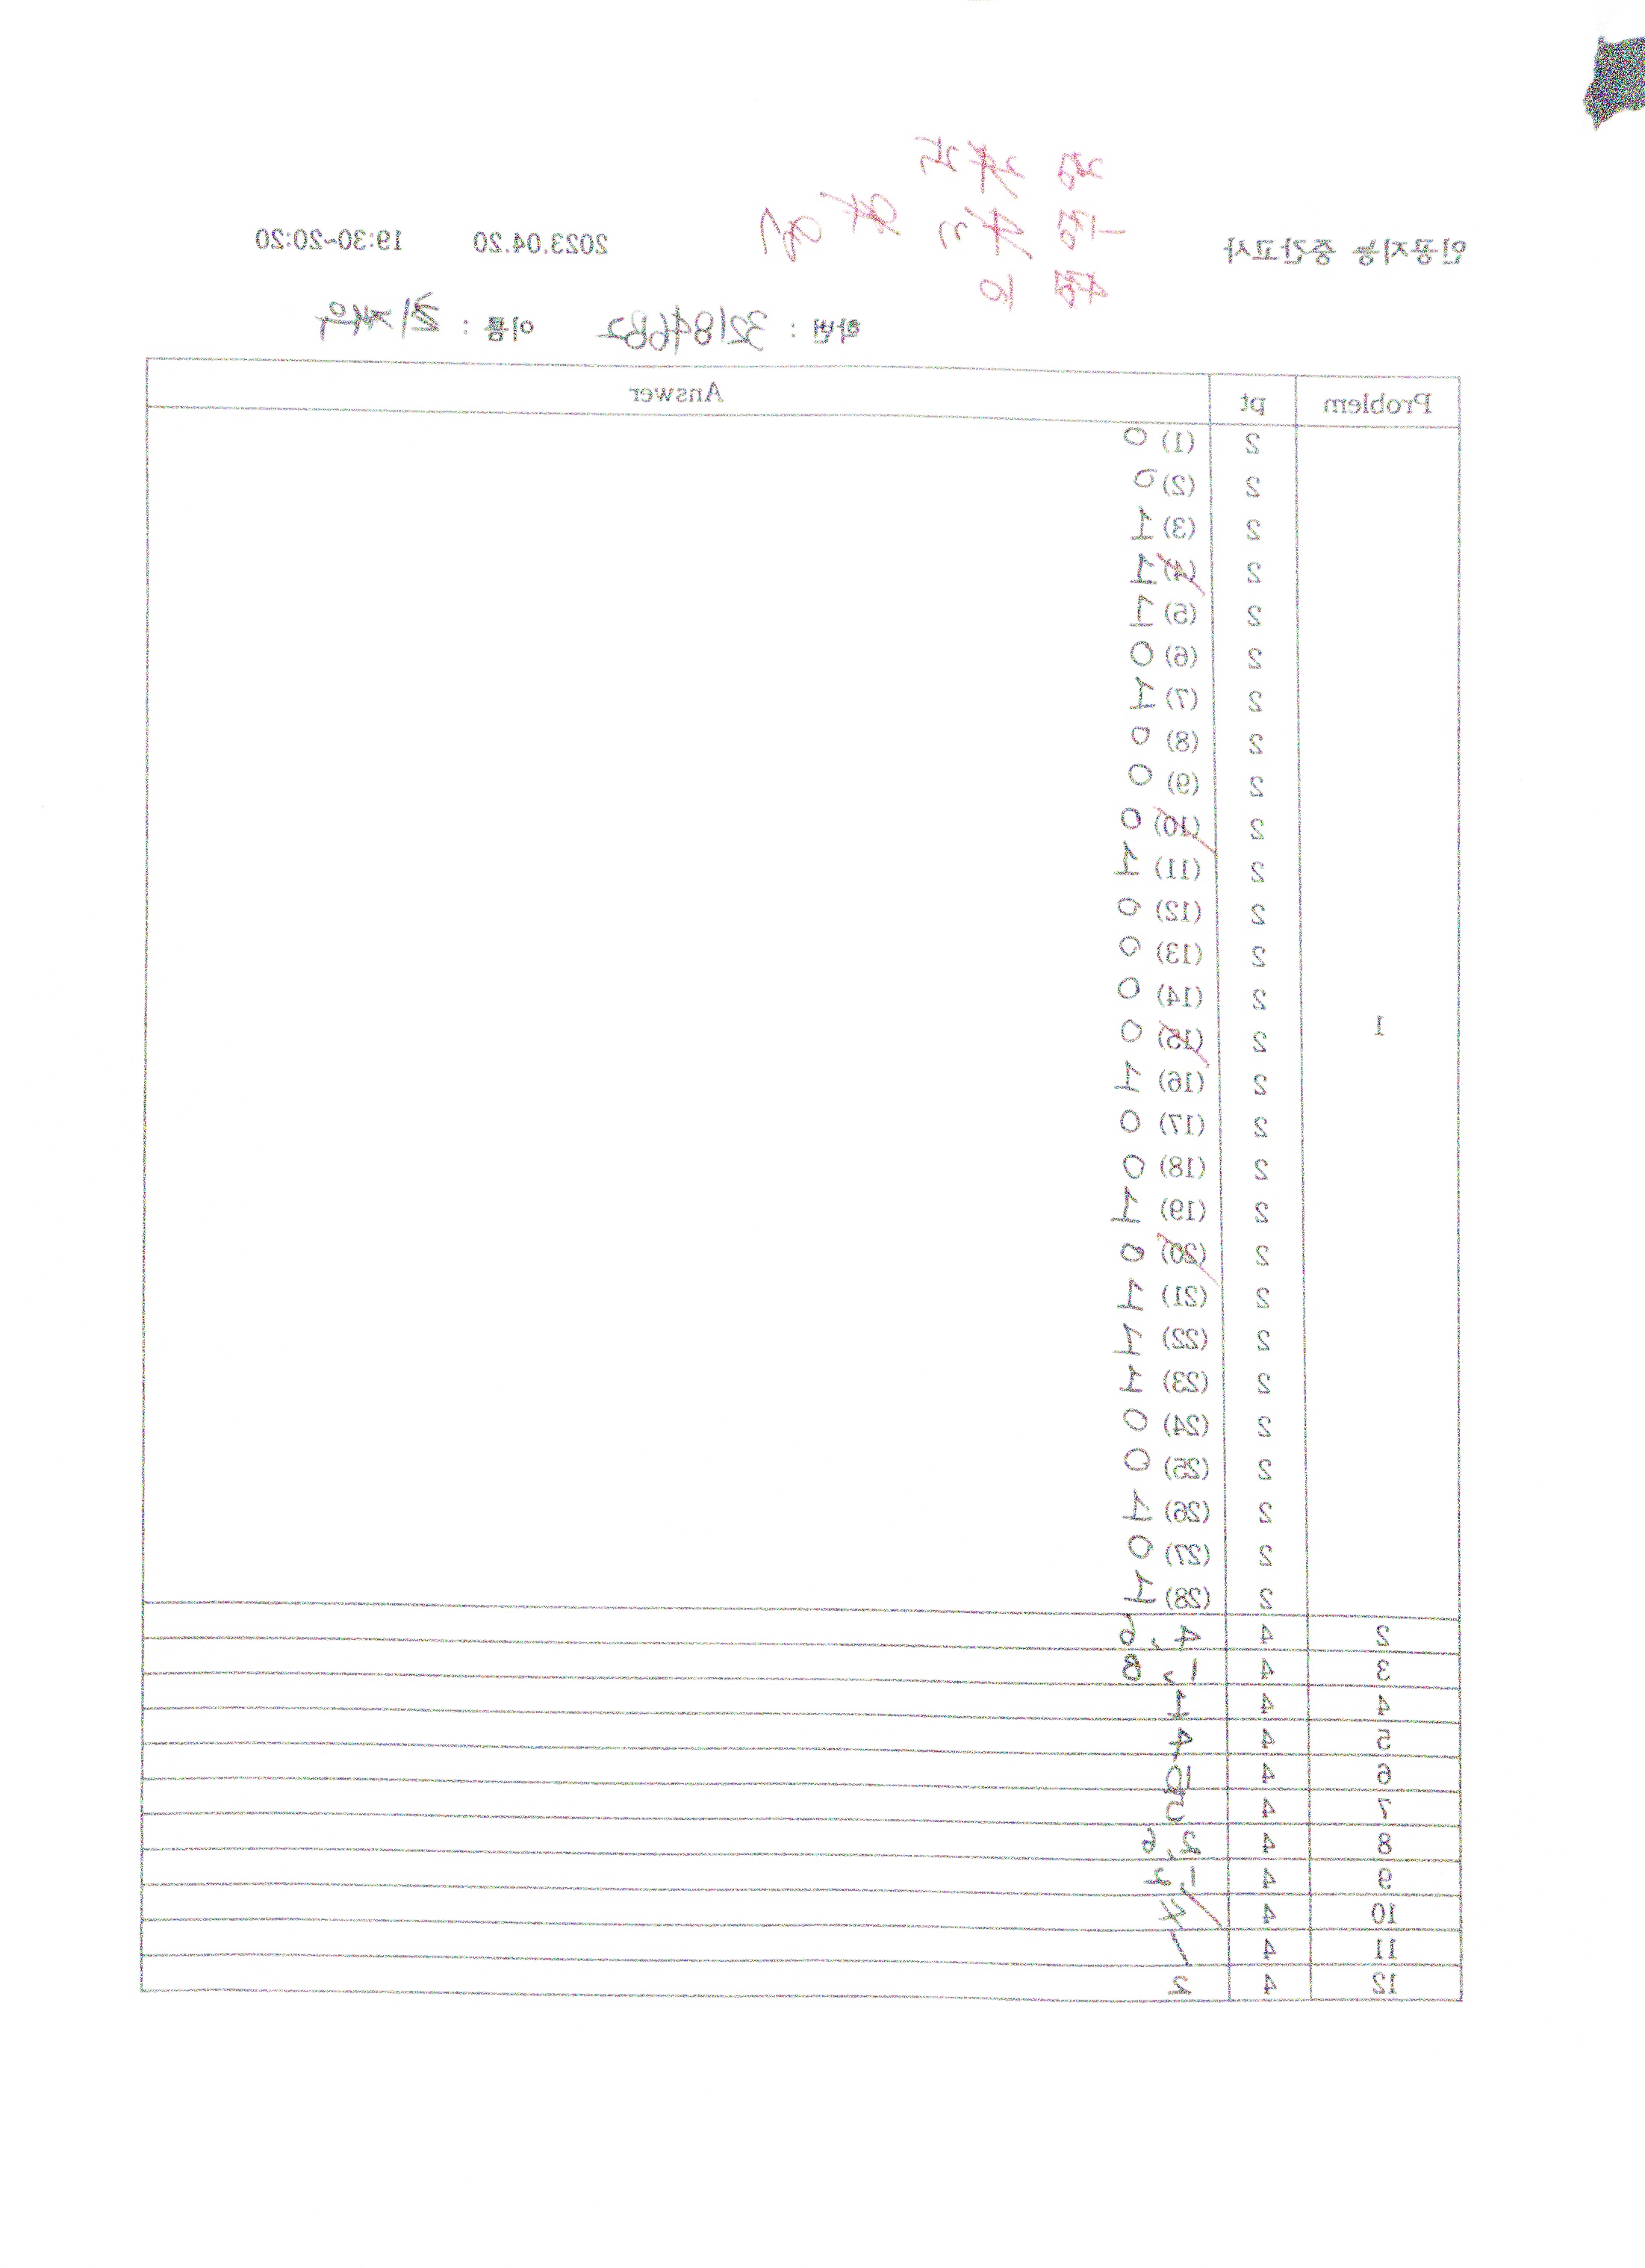 인공지능 중간고사 2023.04.20 19:30-20:20
학번 : 32184682 이름 :
Problem pt Answer
1
2 (1) 0
2 (2) 0
2 (3) 1
2 (4) 1
2 (5) 1
2 (6) 0
2 (7) 1
2 (8) 0
2 (9) 0
2 (10) 0
2 (11) 1
2 (12) 0
2 (13) 0
2 (14) 0
2 (15) 0
2 (16) 1
2 (17) 0
2 (18) 0
2 (19) 1
2 (20) 0
2 (21) 1
2 (22) 1
2 (23) 1
2 (24) 0
2 (25) 0
2 (26) 1
2 (27) 0
2 (28) 1
2 4 4, 6
3 4 1, 8
4 4 1
5 4 4
6 4 10
7 4 5
8 4 2, 6
9 4 1, 2
10 4 4
11 4 1
12 4 2